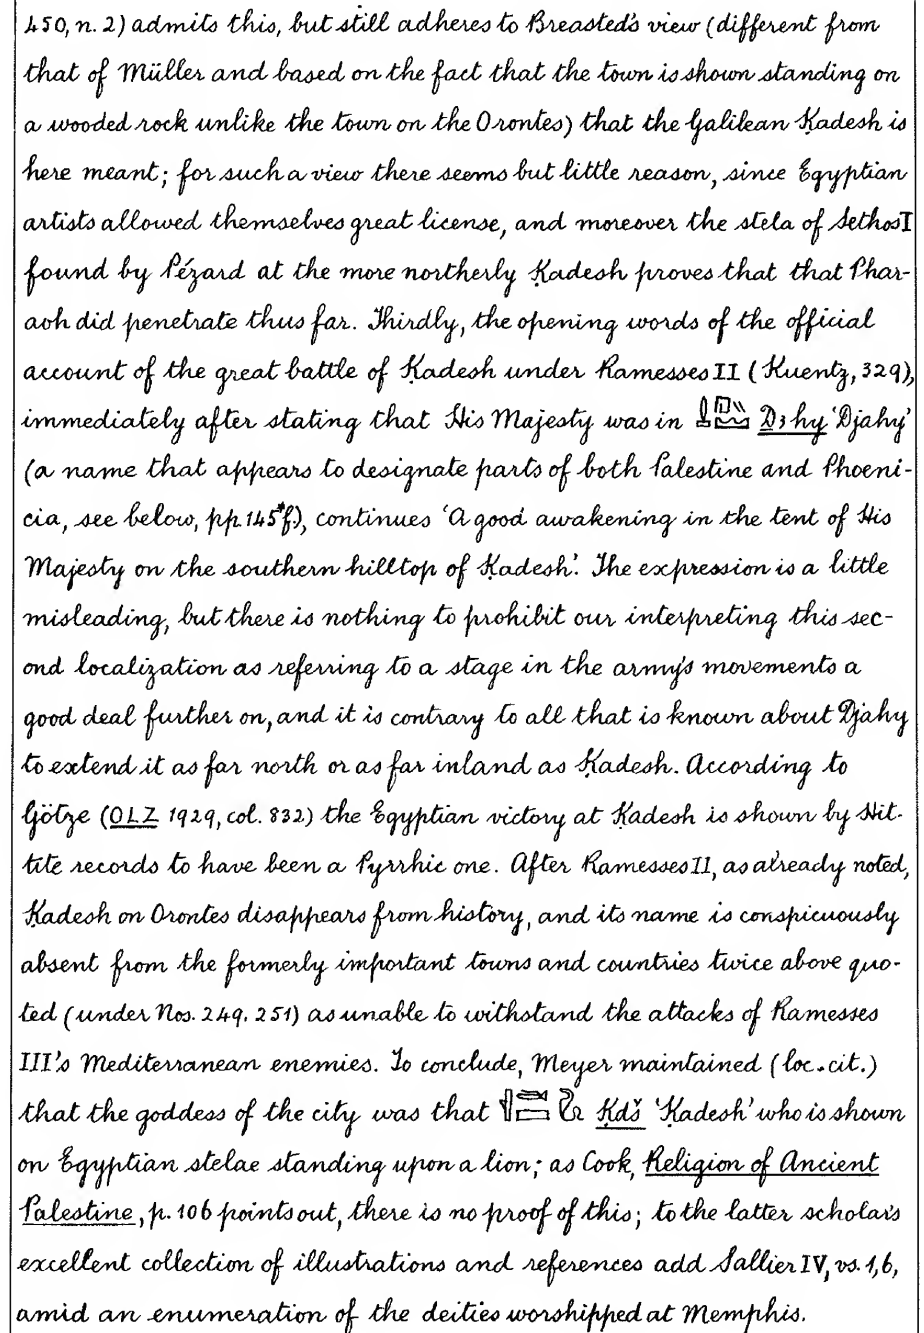 450, n. 2) admits this, but still adheres to Breasted's view (different from
that of Müller and based on the fact that the town is shown standing on
a wooded rock unlike the town on the Orontes) that the Galilean Ḳadesh is
here meant; for such a view there seems but little reason, since Egyptian
artists allowed themselves great license, and moreover the stela of Sethos I
found by Pézard at the more northerly Ḳadesh proves that that Phar-
aoh did penetrate thus far. Thirdly, the opening words of the official
account of the great battle of Ḳadesh under Ramesses II (Kuentz, 329),
immediately after stating that His Majesty was in Ḏꜣhy 'Djahy'
(a name that appears to designate parts of both Palestine and Phoeni-
cia, see below, pp. 145*f.), continues 'A good awakening in the tent of His
Majesty on the southern hilltop of Ḳadesh'. The expression is a little
misleading, but there is nothing to prohibit our interpreting this sec-
ond localization as referring to a stage in the army's movements a
good deal further on, and it is contrary to all that is known about Djahy
to extend it as far north or as far inland as Ḳadesh. According to
Götze (OLZ 1929, col. 832) the Egyptian victory at Ḳadesh is shown by Hit-
tite records to have been a Pyrrhic one. After Ramesses II, as already noted,
Ḳadesh on Orontes disappears from history, and its name is conspicuously
absent from the formerly important towns and countries twice above quo-
ted (under Nos. 249. 251) as unable to withstand the attacks of Ramesses
III's Mediterranean enemies. To conclude, Meyer maintained (loc. cit.)
that the goddess of the city was that Ḳdš 'Ḳadesh' who is shown
on Egyptian stelae standing upon a lion; as Cook, Religion of Ancient
Palestine, p. 106 points out, there is no proof of this; to the latter scholar's
excellent collection of illustrations and references add Sallier IV, vs. 1,6,
amid an enumeration of the deities worshipped at Memphis.